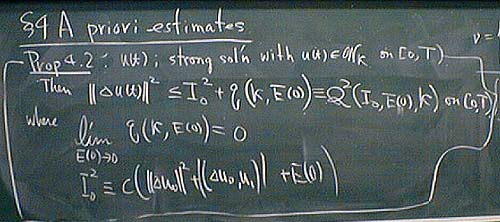 §4 A priori estimates
ν =
Prop 4.2 : u(t) ; strong sol'n with u(t) ∈ 𝒲_K on [0,T)
Then ‖Δu(t)‖² ≤ I₀² + q(K, E(0)) ≡ Q²(I₀, E(0), K) on [0,T)
where lim_{E(0)→0} q(K, E(0)) = 0
I₀² ≡ C(‖Δu₀‖² + |(Δu₀, u₁)| + E(0))